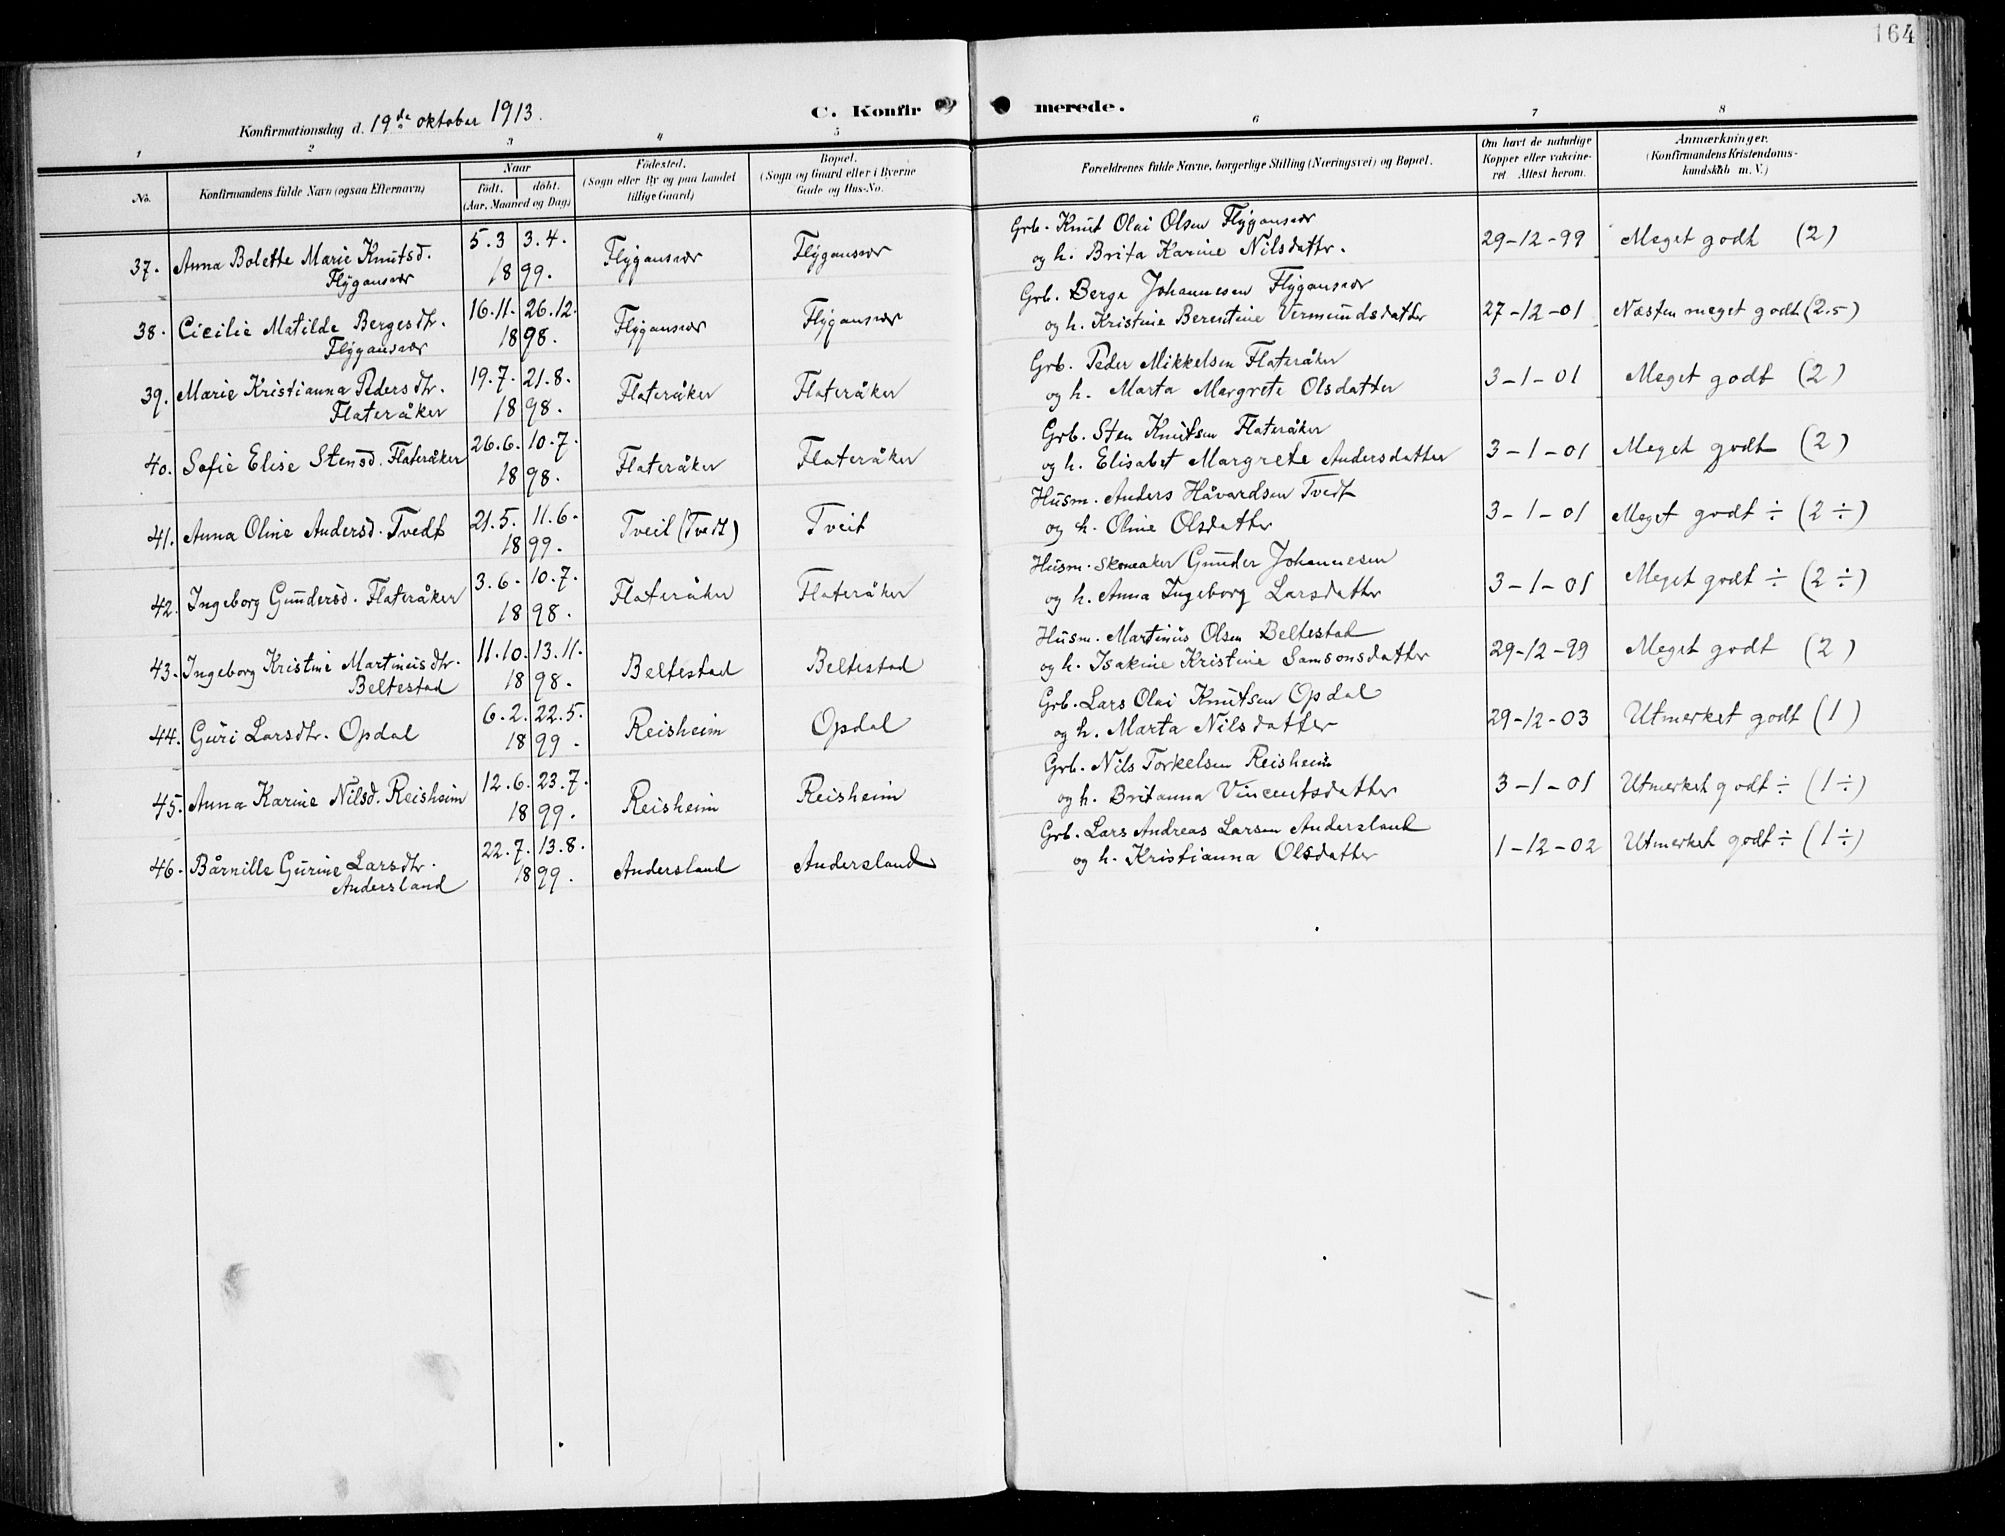 164
Konfirmationsdag d. 19de oktober 1913.
C. Konfirmerede.
1 2 3 4 5 6 7 8
No. Konfirmandens fulde Navn (ogsaa Efternavn) Naar født. døbt. (Aar, Maaned og Dag) Fødested. (Sogn eller By og paa Landet tillige Gaard) Bopæl. (Sogn og Gaard eller i Byerne Gade og Hus-No. Forældrenes fulde Navne, borgerlige Stilling (Næringsvei) og Bopæl. Om havt de naturlige Kopper eller vakcineret. Attest herom. Anmærkninger. (Konfirmandens Kristendomskundskab m. V.)
37. Anna Bolette Marie Knutsd. 5.3 3.4. Flygansvær Flygansvær Grb. Knut Olai Olsen Flygansvær 29-12-99 Meget godt (2)
Flygansvær 1899. og h. Brita Karine Nilsdattr.
38. Cicilie Matilde Bergesdtr. 16.11. 26.12. Flygansvær Flygansvær Grb. Berge Johannesen Flygansvær 27-12-01 Næsten meget godt (2.5)
Flygansvær 1898. og h. Kristine Berentine Vermundsdatter
39. Marie Kristianna Pedersdtr. 19.7. 21.8. Flateråker Flateråker Grb. Peder Mikkelsen Flateråker 3-1-01 Meget godt (2)
Flateråker 1898. og h. Marta Margrete Olsdatter
40. Sofie Elise Stensd. Flateråker 26.6. 10.7. Flateråker Flateråker Grb. Sten Knutsen Flateråker 3-1-01 Meget godt (2)
1898. og h. Elisabet Margrete Andersdatter
41. Anna Oline Andersd. Tvedt 21.5. 11.6. Tveit (Tvedt) Tveit Husm. Anders Håvardsen Tvedt 3-1-01 Meget godt ÷ (2 ÷)
1899. og h. Oline Olsdatter
42. Ingeborg Gundersd. Flateråker 3.6. 10.7. Flateråker Flateråker Husm. Skomaker Gunder Johannesen 3-1-01 Meget godt ÷ (2 ÷)
1898. og h. Anna Ingeborg Larsdatter
43. Ingeborg Kristine Martinusdtr. 11.10. 13.11. Beltestad Beltestad Husm. Martinus Olsen Beltestad 29-12-99 Meget godt (2)
Beltestad 1898. og h. Isakine Kristine Samsonsdatter
44. Guri Larsdtr. Opdal 6.2. 22.5. Reisheim Opdal Grb. Lars Olai Knutsen Opdal 29-12-03 Utmerket godt (1)
1899. og h. Marta Nilsdatter
45. Anna Karine Nilsd. Reisheim 12.6. 23.7. Reisheim Reisheim Grb. Nils Torkelsen Reisheim 3-1-01 Utmerket godt ÷ (1 ÷)
1899. og h. Britanna Vincentsdatter
46. Bårnille Gurine Larsdtr. 22.7. 13.8. Andersland Andersland Grb. Lars Andreas Larsen Andersland 1-12-02 Utmerket godt ÷ (1 ÷)
Andersland 1899. og h. Kristianna Olsdatter